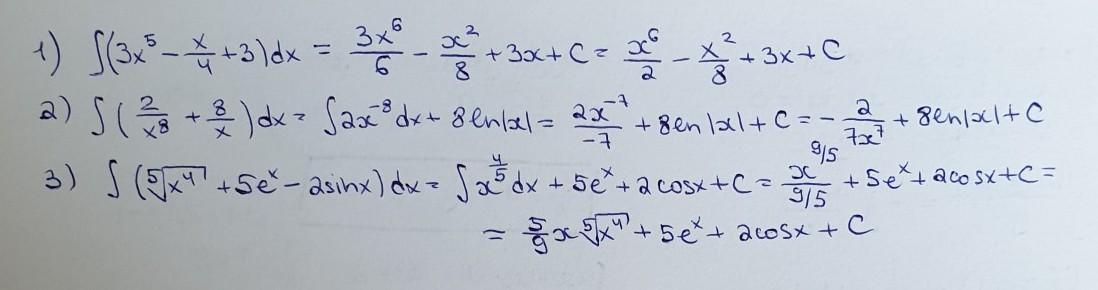 1) ∫(3x⁵ - x/4 + 3)dx = 3x⁶/6 - x²/8 + 3x + C = x⁶/2 - x²/8 + 3x + C
2) ∫(2/x⁸ + 8/x)dx = ∫2x⁻⁸dx + 8ln|x| = 2x⁻⁷/-7 + 8ln|x| + C = -2/7x⁷ + 8ln|x| + C
3) ∫(⁵√x⁴ + 5eˣ - 2sinx)dx = ∫x^4/5 dx + 5eˣ + 2cosx + C = x^9/5 / 9/5 + 5eˣ + 2cosx + C =
= 5/9 x ⁵√x⁴ + 5eˣ + 2cosx + C